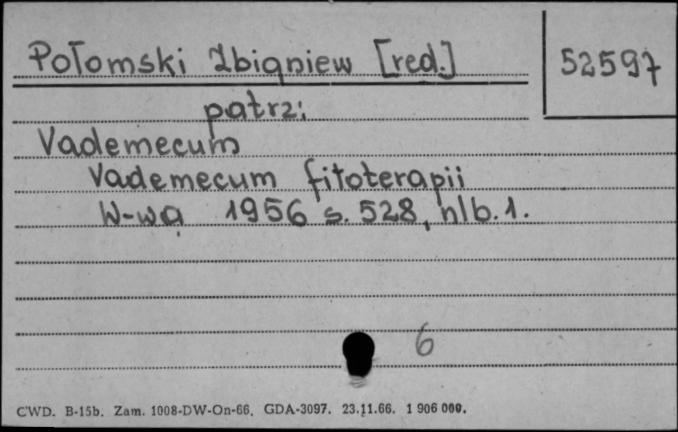 Połomski Zbigniew [red.]
52597
patrz:
Vademecum
Vademecum fitoterapii
W-wa 1956 s. 528, nlb. 1.
6
CWD. B-15b. Zam. 1008-DW-On-66. GDA-3097. 23.11.66. 1 906 000.